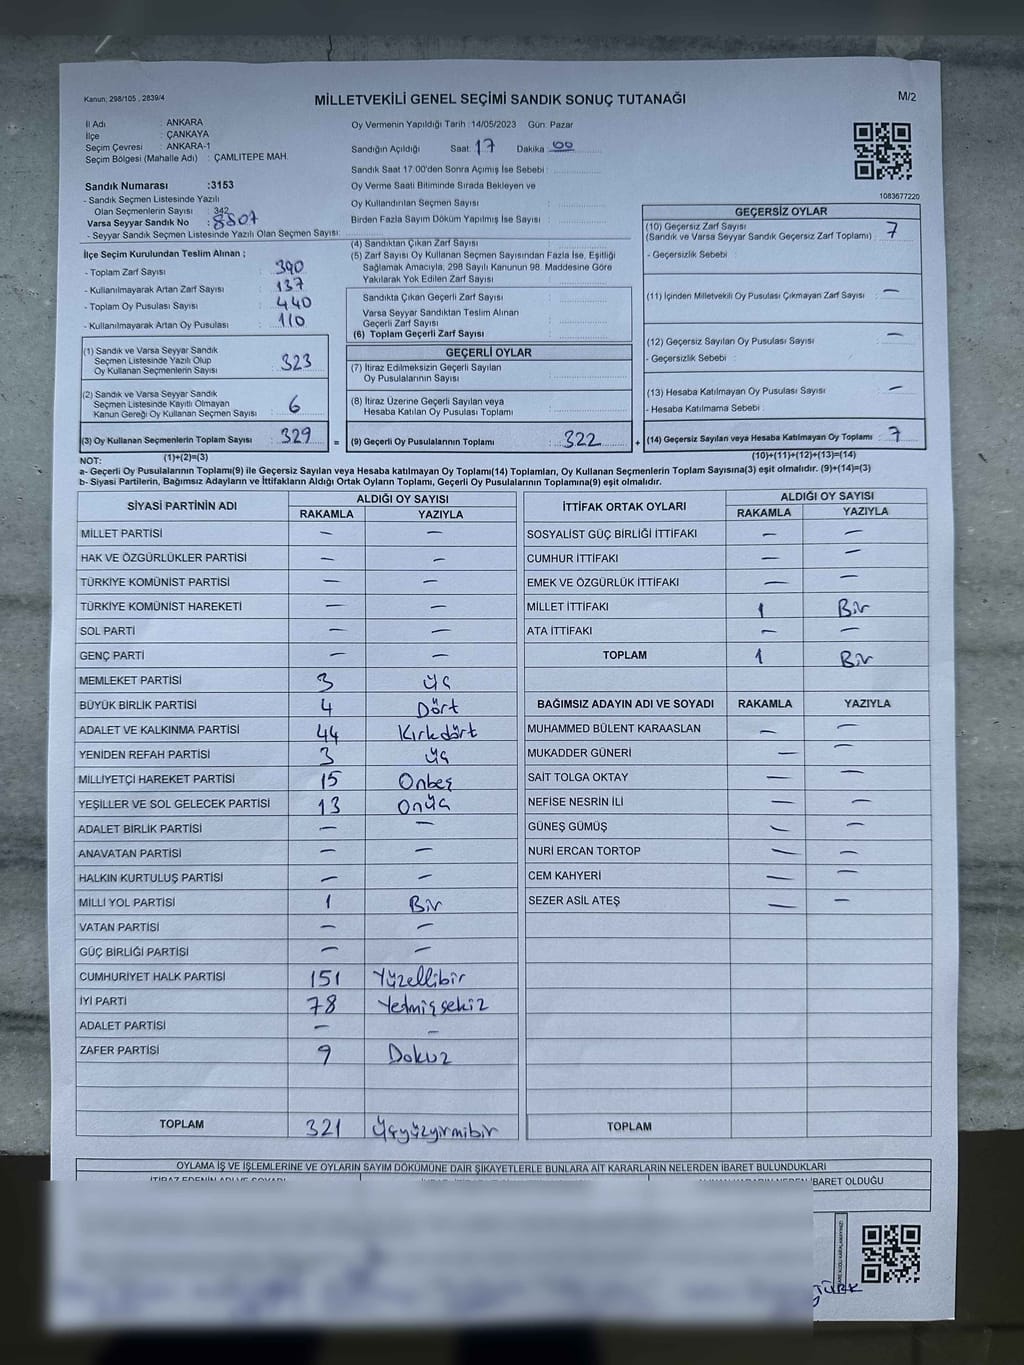 Kanun; 298/105 , 2839/4
MİLLETVEKİLİ GENEL SEÇİMİ SANDIK SONUÇ TUTANAĞI
M/2
İl Adı : ANKARA
İlçe : ÇANKAYA
Seçim Çevresi : ANKARA-1
Seçim Bölgesi (Mahalle Adı) : ÇAMLITEPE MAH.
Sandık Numarası :3153
- Sandık Seçmen Listesinde Yazılı
Olan Seçmenlerin Sayısı : 342
Varsa Seyyar Sandık No : 8807
- Seyyar Sandık Seçmen Listesinde Yazılı Olan Seçmen Sayısı:
Oy Vermenin Yapıldığı Tarih :14/05/2023 Gün: Pazar
Sandığın Açıldığı Saat: 17 Dakika: 00
Sandık Saat 17:00'den Sonra Açımış İse Sebebi :
Oy Verme Saati Bitiminde Sırada Bekleyen ve
Oy Kullandırılan Seçmen Sayısı :
Birden Fazla Sayım Döküm Yapılmış İse Sayısı :
1083677220
İlçe Seçim Kurulundan Teslim Alınan ;
- Toplam Zarf Sayısı : 390
- Kullanılmayarak Artan Zarf Sayısı : 137
- Toplam Oy Pusulası Sayısı : 440
- Kullanılmayarak Artan Oy Pusulası : 110
(1) Sandık ve Varsa Seyyar Sandık
Seçmen Listesinde Yazılı Olup
Oy Kullanan Seçmenlerin Sayısı : 323
(2) Sandık ve Varsa Seyyar Sandık
Seçmen Listesinde Kayıtlı Olmayan
Kanun Gereği Oy Kullanan Seçmen Sayısı : 6
(3) Oy Kullanan Seçmenlerin Toplam Sayısı : 329 =
(1)+(2)=(3)
(4) Sandıktan Çıkan Zarf Sayısı :
(5) Zarf Sayısı Oy Kullanan Seçmen Sayısından Fazla İse, Eşitliği
Sağlamak Amacıyla, 298 Sayılı Kanunun 98. Maddesine Göre
Yakılarak Yok Edilen Zarf Sayısı :
Sandıkta Çıkan Geçerli Zarf Sayısı :
Varsa Seyyar Sandıktan Teslim Alınan
Geçerli Zarf Sayısı :
(6) Toplam Geçerli Zarf Sayısı :
GEÇERLİ OYLAR
(7) İtiraz Edilmeksizin Geçerli Sayılan
Oy Pusulalarının Sayısı :
(8) İtiraz Üzerine Geçerli Sayılan veya
Hesaba Katılan Oy Pusulası Toplamı :
(9) Geçerli Oy Pusulalarının Toplamı : 322 +
GEÇERSİZ OYLAR
(10) Geçersiz Zarf Sayısı : 7
(Sandık ve Varsa Seyyar Sandık Geçersiz Zarf Toplamı)
- Geçersizlik Sebebi :
(11) İçinden Milletvekil Oy Pusulası Çıkmayan Zarf Sayısı : —
(12) Geçersiz Sayılan Oy Pusulası Sayısı : —
- Geçersizlik Sebebi :
(13) Hesaba Katılmayan Oy Pusulası Sayısı : —
- Hesaba Katılmama Sebebi :
(14) Geçersiz Sayılan veya Hesaba Katılmayan Oy Toplamı : 7
(10)+(11)+(12)+(13)=(14)
NOT:
a- Geçerli Oy Pusulalarının Toplamı(9) ile Geçersiz Sayılan veya Hesaba katılmayan Oy Toplamı(14) Toplamları, Oy Kullanan Seçmenlerin Toplam Sayısına(3) eşit olmalıdır. (9)+(14)=(3)
b- Siyasi Partilerin, Bağımsız Adayların ve İttifakların Aldığı Ortak Oyların Toplamı, Geçerli Oy Pusulalarının Toplamına(9) eşit olmalıdır.
SİYASİ PARTİNİN ADI ALDIĞI OY SAYISI
RAKAMLA YAZIYLA
MİLLET PARTİSİ — —
HAK VE ÖZGÜRLÜKLER PARTİSİ — —
TÜRKİYE KOMÜNİST PARTİSİ — —
TÜRKİYE KOMÜNİST HAREKETİ — —
SOL PARTİ — —
GENÇ PARTİ — —
MEMLEKET PARTİSİ 3 üç
BÜYÜK BİRLİK PARTİSİ 4 Dört
ADALET VE KALKINMA PARTİSİ 44 Kırkdört
YENİDEN REFAH PARTİSİ 3 üç
MİLLİYETÇİ HAREKET PARTİSİ 15 Onbeş
YEŞİLLER VE SOL GELECEK PARTİSİ 13 Onüç
ADALET BİRLİK PARTİSİ — —
ANAVATAN PARTİSİ — —
HALKIN KURTULUŞ PARTİSİ — —
MİLLİ YOL PARTİSİ 1 Bir
VATAN PARTİSİ — —
GÜÇ BİRLİĞİ PARTİSİ — —
CUMHURİYET HALK PARTİSİ 151 Yüzellibir
İYİ PARTİ 78 Yetmişsekiz
ADALET PARTİSİ — —
ZAFER PARTİSİ 9 Dokuz
TOPLAM 321 Üçyüzyirmibir
İTTİFAK ORTAK OYLARI ALDIĞI OY SAYISI
RAKAMLA YAZIYLA
SOSYALİST GÜÇ BİRLİĞİ İTTİFAKI — —
CUMHUR İTTİFAKI — —
EMEK VE ÖZGÜRLÜK İTTİFAKI — —
MİLLET İTTİFAKI 1 Bir
ATA İTTİFAKI — —
TOPLAM 1 Bir
BAĞIMSIZ ADAYIN ADI VE SOYADI RAKAMLA YAZIYLA
MUHAMMED BÜLENT KARAASLAN — —
MUKADDER GÜNERİ — —
SAİT TOLGA OKTAY — —
NEFİSE NESRİN İLİ — —
GÜNEŞ GÜMÜŞ — —
NURİ ERCAN TORTOP — —
CEM KAHYERİ — —
SEZER ASİL ATEŞ — —
TOPLAM
OYLAMA İŞ VE İŞLEMLERİNE VE OYLARIN SAYIM DÖKÜMÜNE DAİR ŞİKAYETLERLE BUNLARA AİT KARARLARIN NELERDEN İBARET BULUNDUKLARI
İTİRAZ EDENİN ADI VE SOYADI
İBARET OLDUĞU